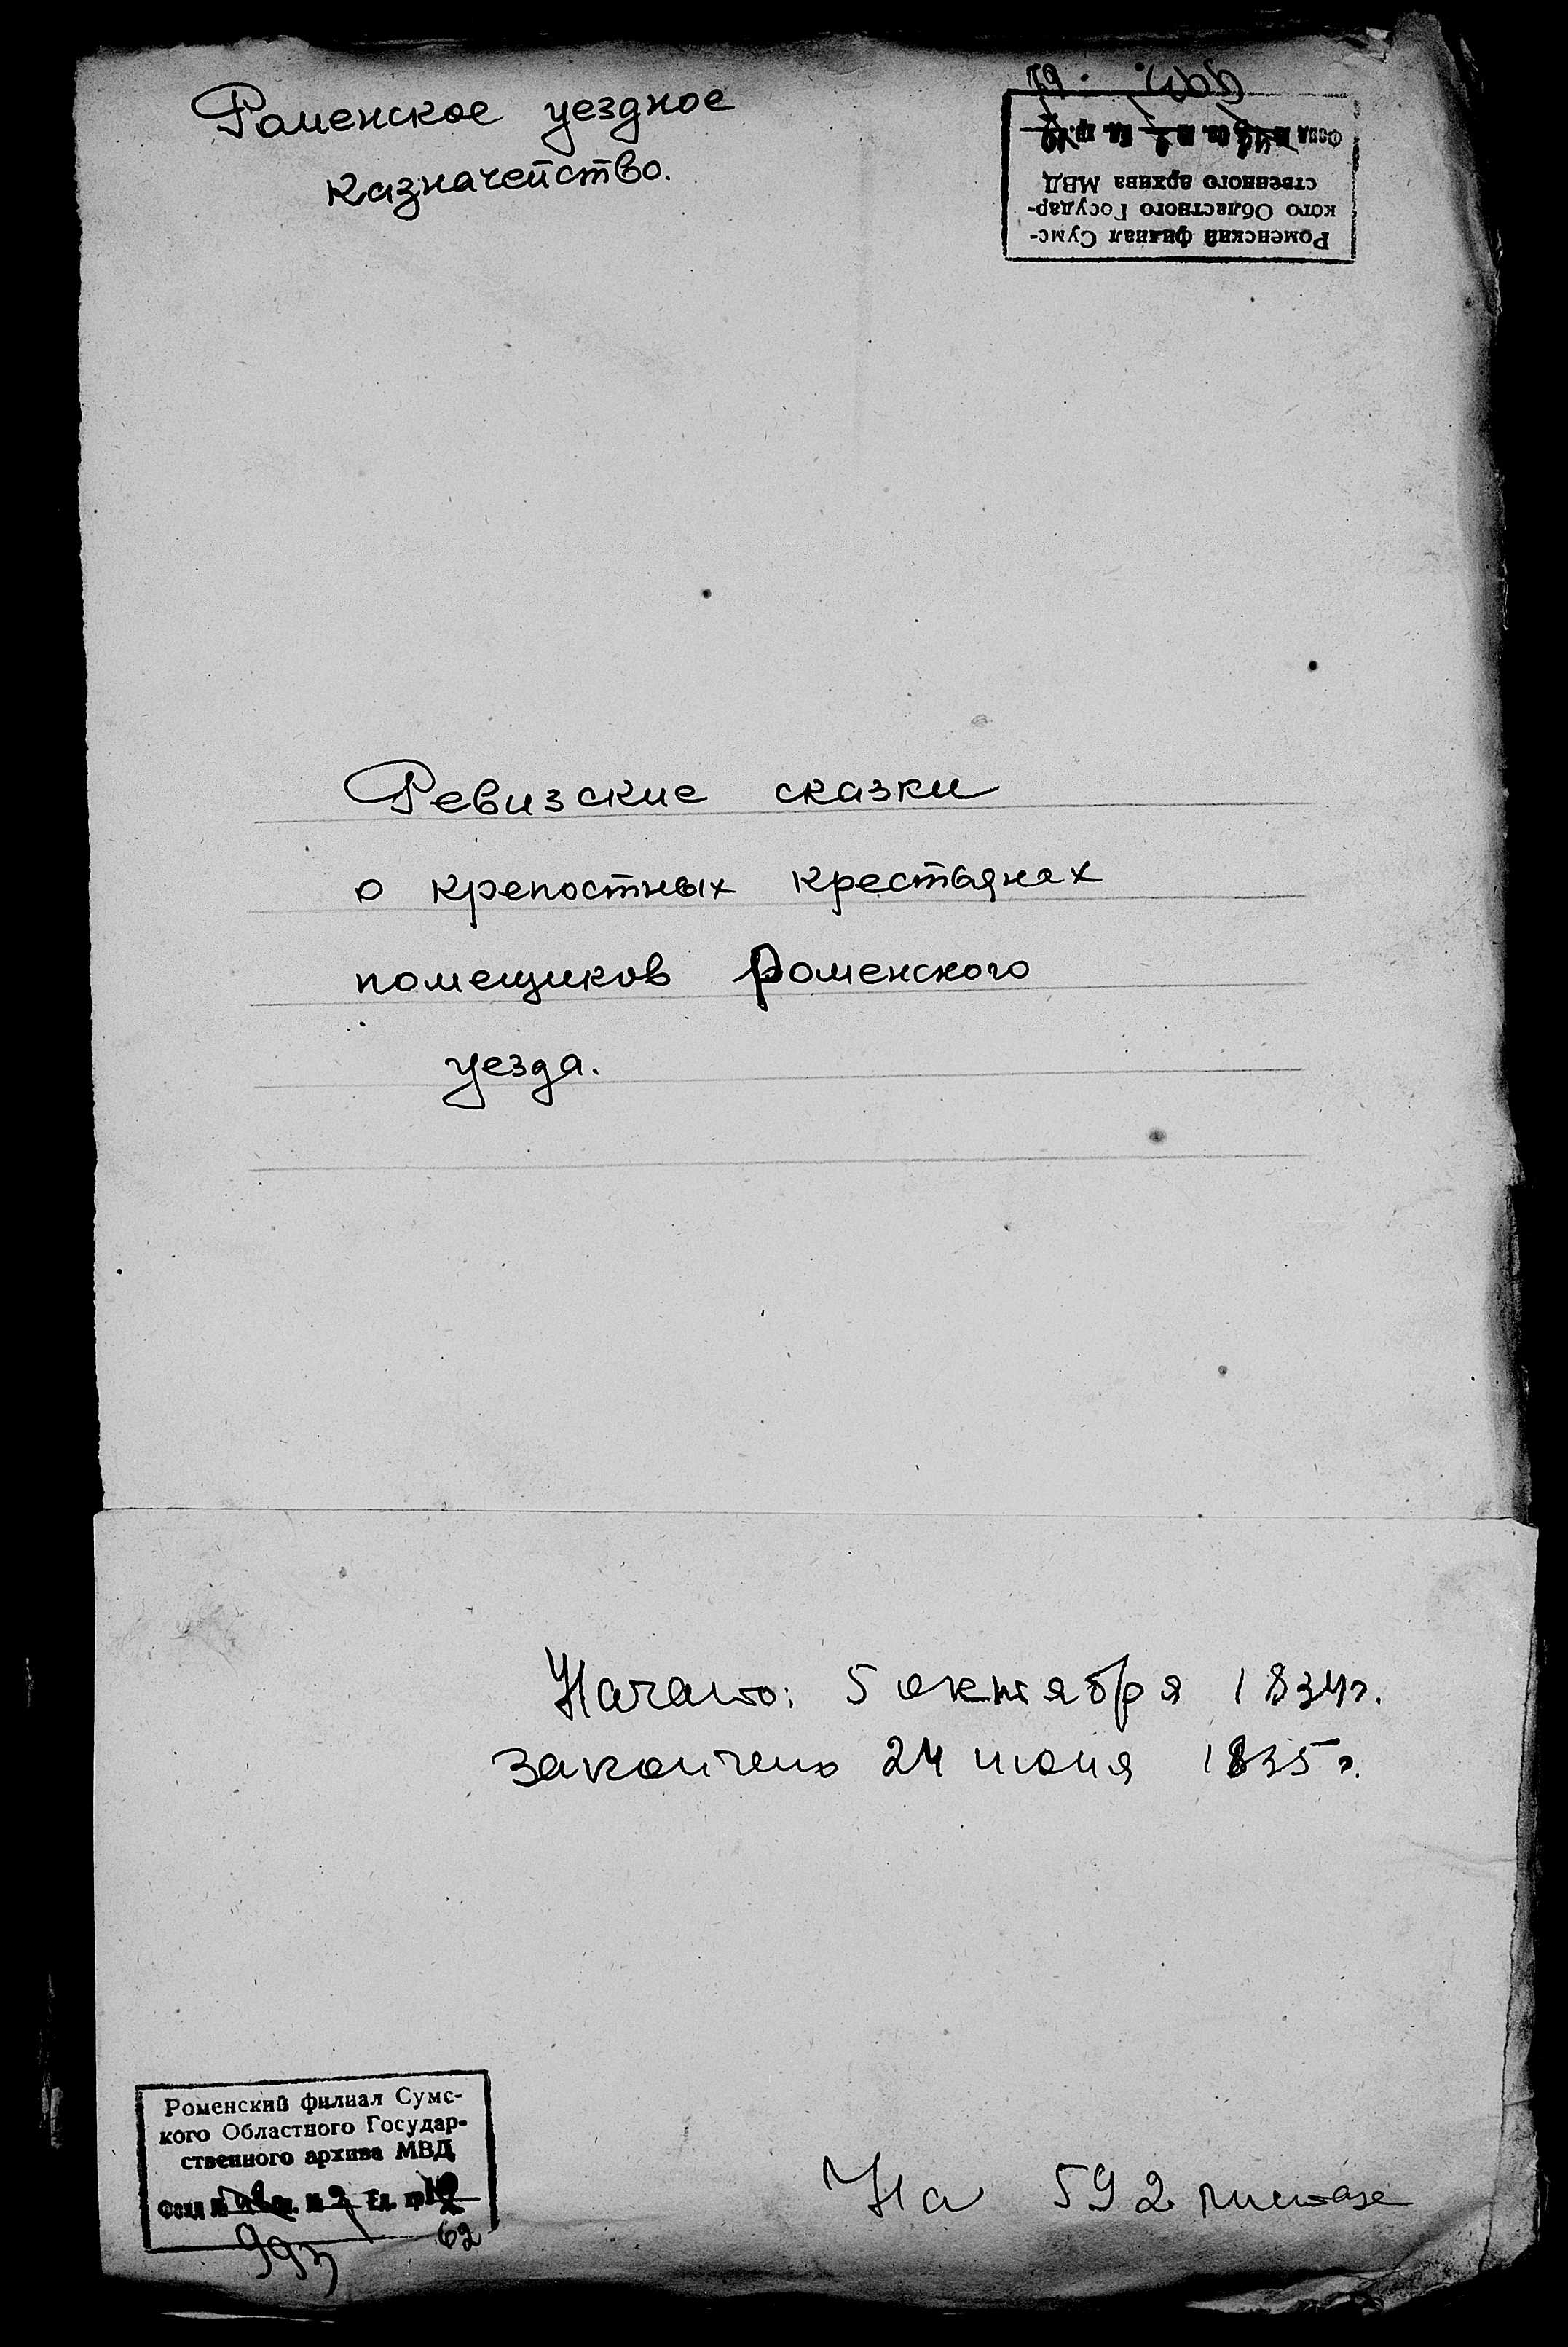 Роменское уездное
казначейство.
Роменский филиал Сумс-
кого Областного Государ-
ственного архива МВД
Ревизские сказки
о крепостных крестьянах
помещиков Роменского
уезда.
Начато: 5 октября 1834г.
закончено 24 июня 1835г.
Роменский филиал Сумс-
кого Областного Государ-
ственного архива МВД
Фонд № оп. № Ед. хр.
62
На 592 листах